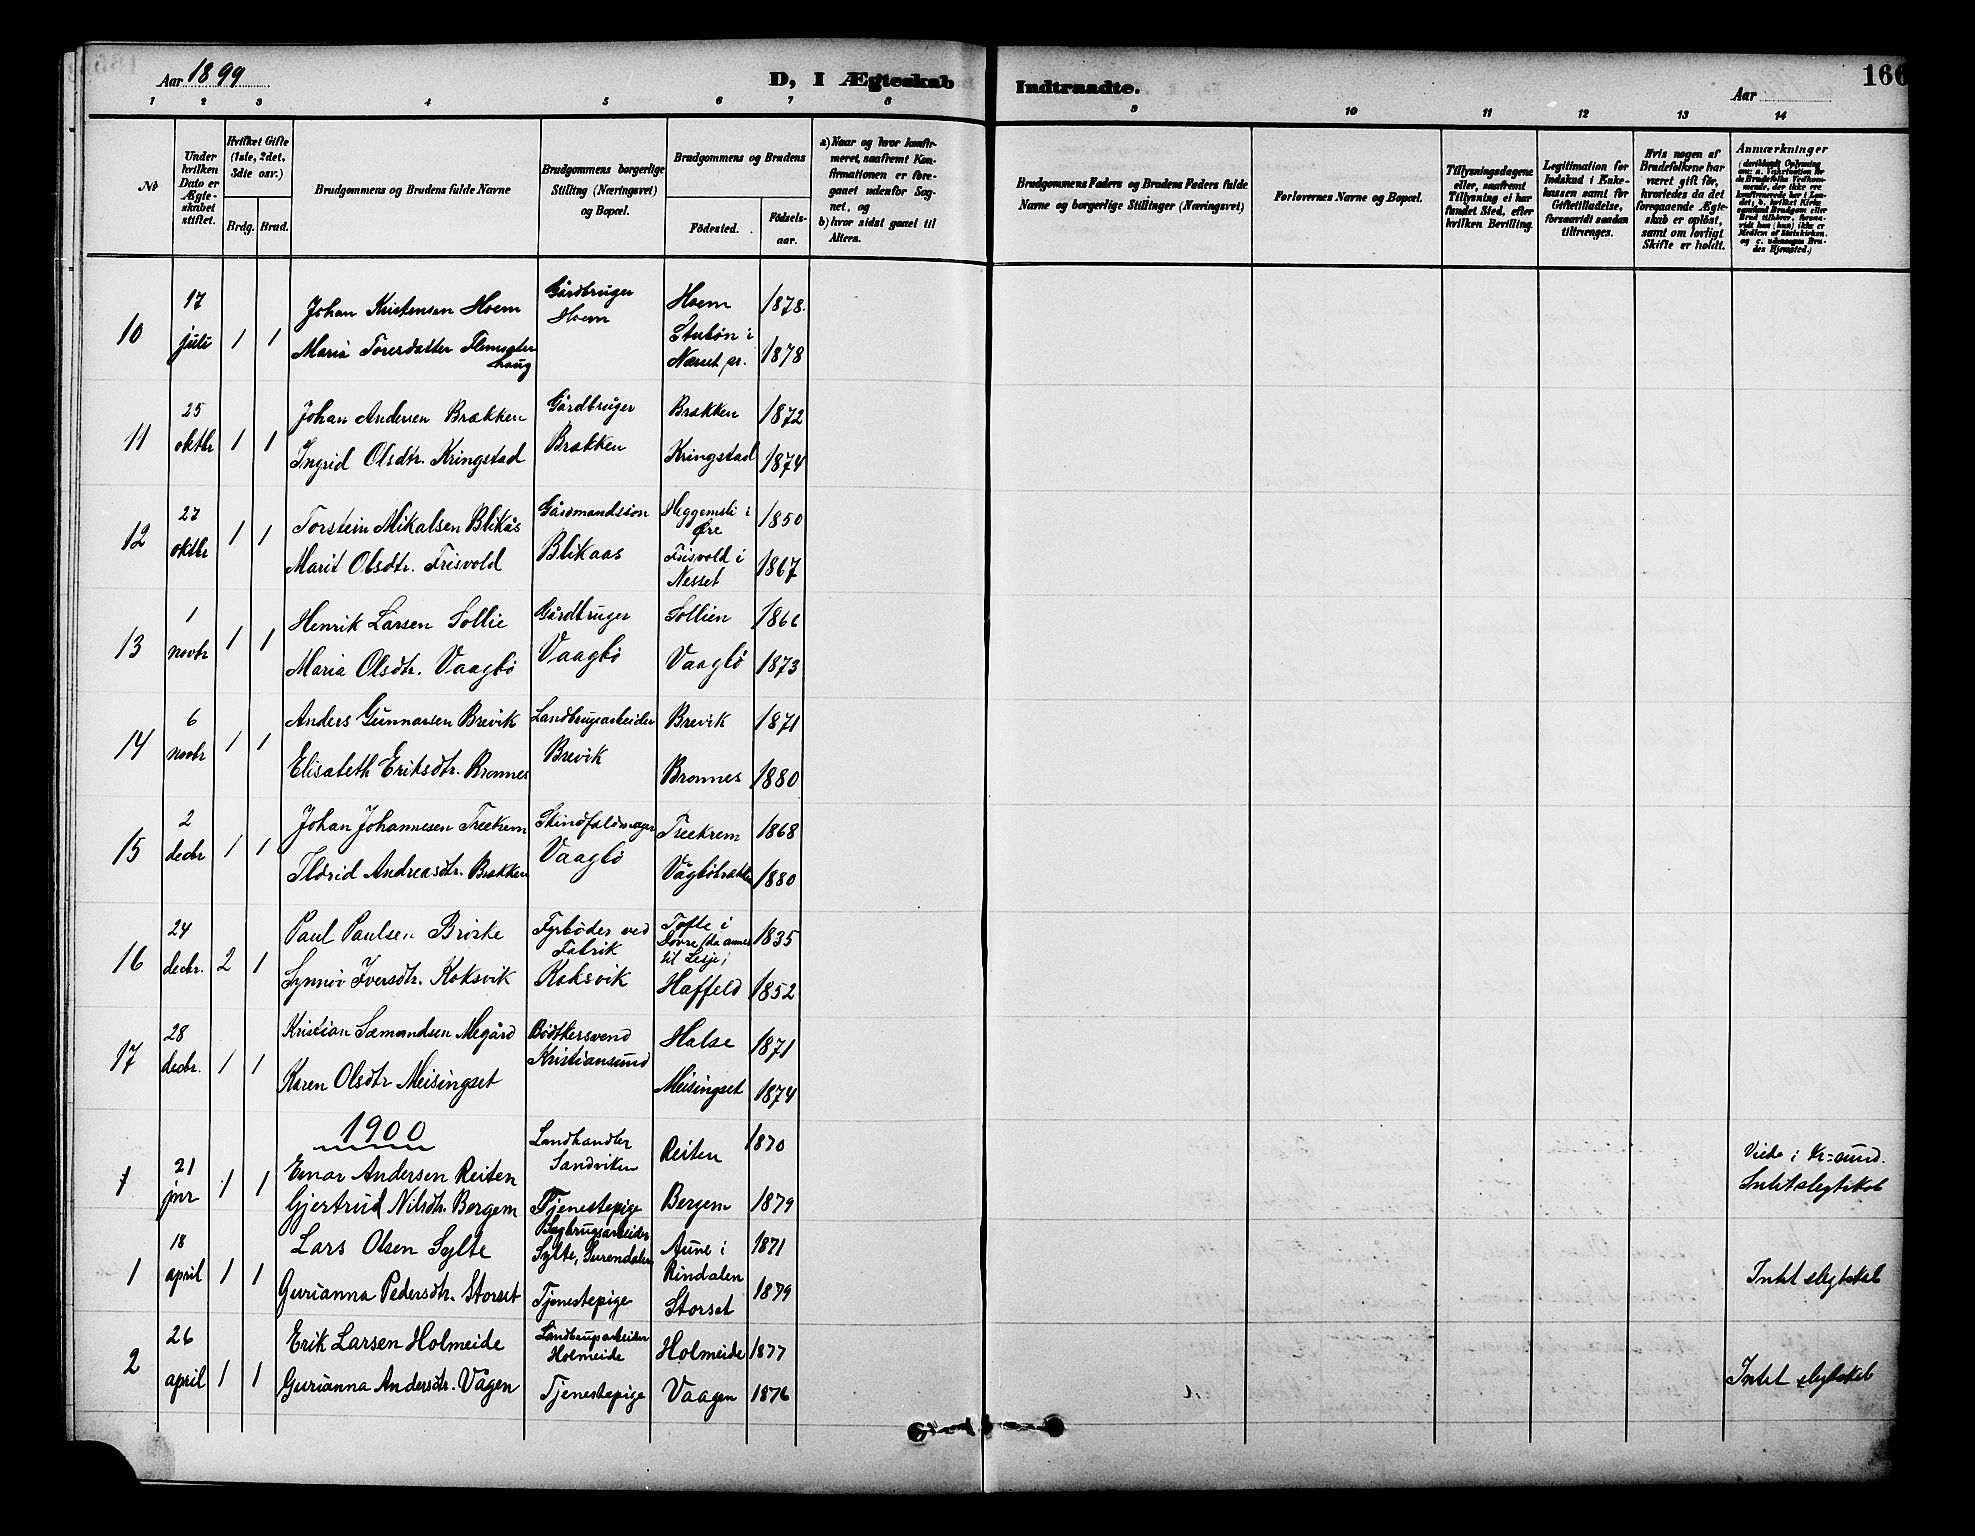 Aar 1899
D, I Ægteskab
Indtraadte.
Aar
166
1 2 3 4 5 6 7 8 9 10 11 12 13 14
No
Under hvilken Dato er Ægteskabet stiftet.
Hvilket Gifte (1ste, 2det, 3dte osv.)
Brdg. Brud.
Brudgommens og Brudens fulde Navne
Brudgommens borgerlige Stilling (Næringsvei) og Bopæl.
Brudgommens og Brudens
Fødested.
Fødselsaar.
a) Naar og hvor konfirmeret, saafremt Konfirmationen er foregaaet udenfor Sognet, og
b) hvor sidst gaaet til Alters.
Brudgommens Faders og Brudens Faders fulde Navne og borgerlige Stillinger (Næringsvei)
Forlovernes Navne og Bopæl.
Tillysningsdagene eller, saafremt Tillysning ei har fundet Sted, efter hvilken Bevilling.
Legitimation for Indskud i Enkekassen samt for Giftetilladelse, forsaavidt saadan tiltrænges.
Hvis nogen af Brudefolkene har været gift før, hvorledes da det foregaaende Ægteskab er opløst, samt om lovligt Skifte er holdt.
Anmærkninger
10 17 juli 1 1 Johan Kristensen Hoem Gårdbruger Hoem Hoem 1878.
Maria Toresdatter Flemsæterhaug Stubøn i Næsset pr. 1878
11 25 oktbr 1 1 Johan Andersen Brækken Gårdbruger Brækken Brækken 1872
Ingrid Olsdtr. Kringstad Kringstad 1874
12 27 oktbr 1 1 Torstein Mikalsen Blikås Gårdmandssøn Blikaas Heggemsli i Øre 1850
Marit Olsdtr. Frisvold Frisvold i Nesset 1867
13 1 novbr 1 1 Henrik Larsen Sollie Gårdbruger Vaagbø Sollien 1866
Maria Olsdtr. Vaagbø Vaagbø 1873
14 6 novbr 1 1 Anders Gunnarsen Brevik Landbrugsarbeider Brevik Brevik 1871
Elisabeth Eriksdtr. Bronnes Bronnes 1880
15 2 decbr 1 1 Johan Johannesen Treekrem Skindfaldmager Vaagbø Treekrem 1868
Ildrid Andreasdtr. Brækken Vågbøbrækken 1880
16 24 decbr. 2 1 Paul Paulsen Briske Fyrbøder ved Fabrik Koksvik Tofte i Dovre (da annex til Lesje) 1835
Synnøv Iversdtr. Koksvik Haffeld 1852
17 28 decbr. 1 1 Kristian Samundsen Megård Bødkersvend Kristiansund Halse 1871
Karen Olsdtr Meisingset Meisingset 1874
1900
1 21 jnr 1 1 Einar Andersen Reiten Landhandler Sandviken Reiten 1870 Viede i Kr=sund.
Gjertrud Nilsdtr. Bergem Tjenestepige Bergem 1879 Intet slegtskab
1 18 april 1 1 Lars Olsen Sylte Sagbrugsarbeider Sylte, Surendalen Aune i Rindalen 1871
Gurianna Pedersdtr. Storset Tjenestepige Storset 1879 Intet slegtskab
2 26 april 1 1 Erik Larsen Holmeide Landbrugsarbeider Holmeide Holmeide 1877
Gurianna Andersdtr. Vågen Tjenestepige Vaagen 1876 Intet slegtskab